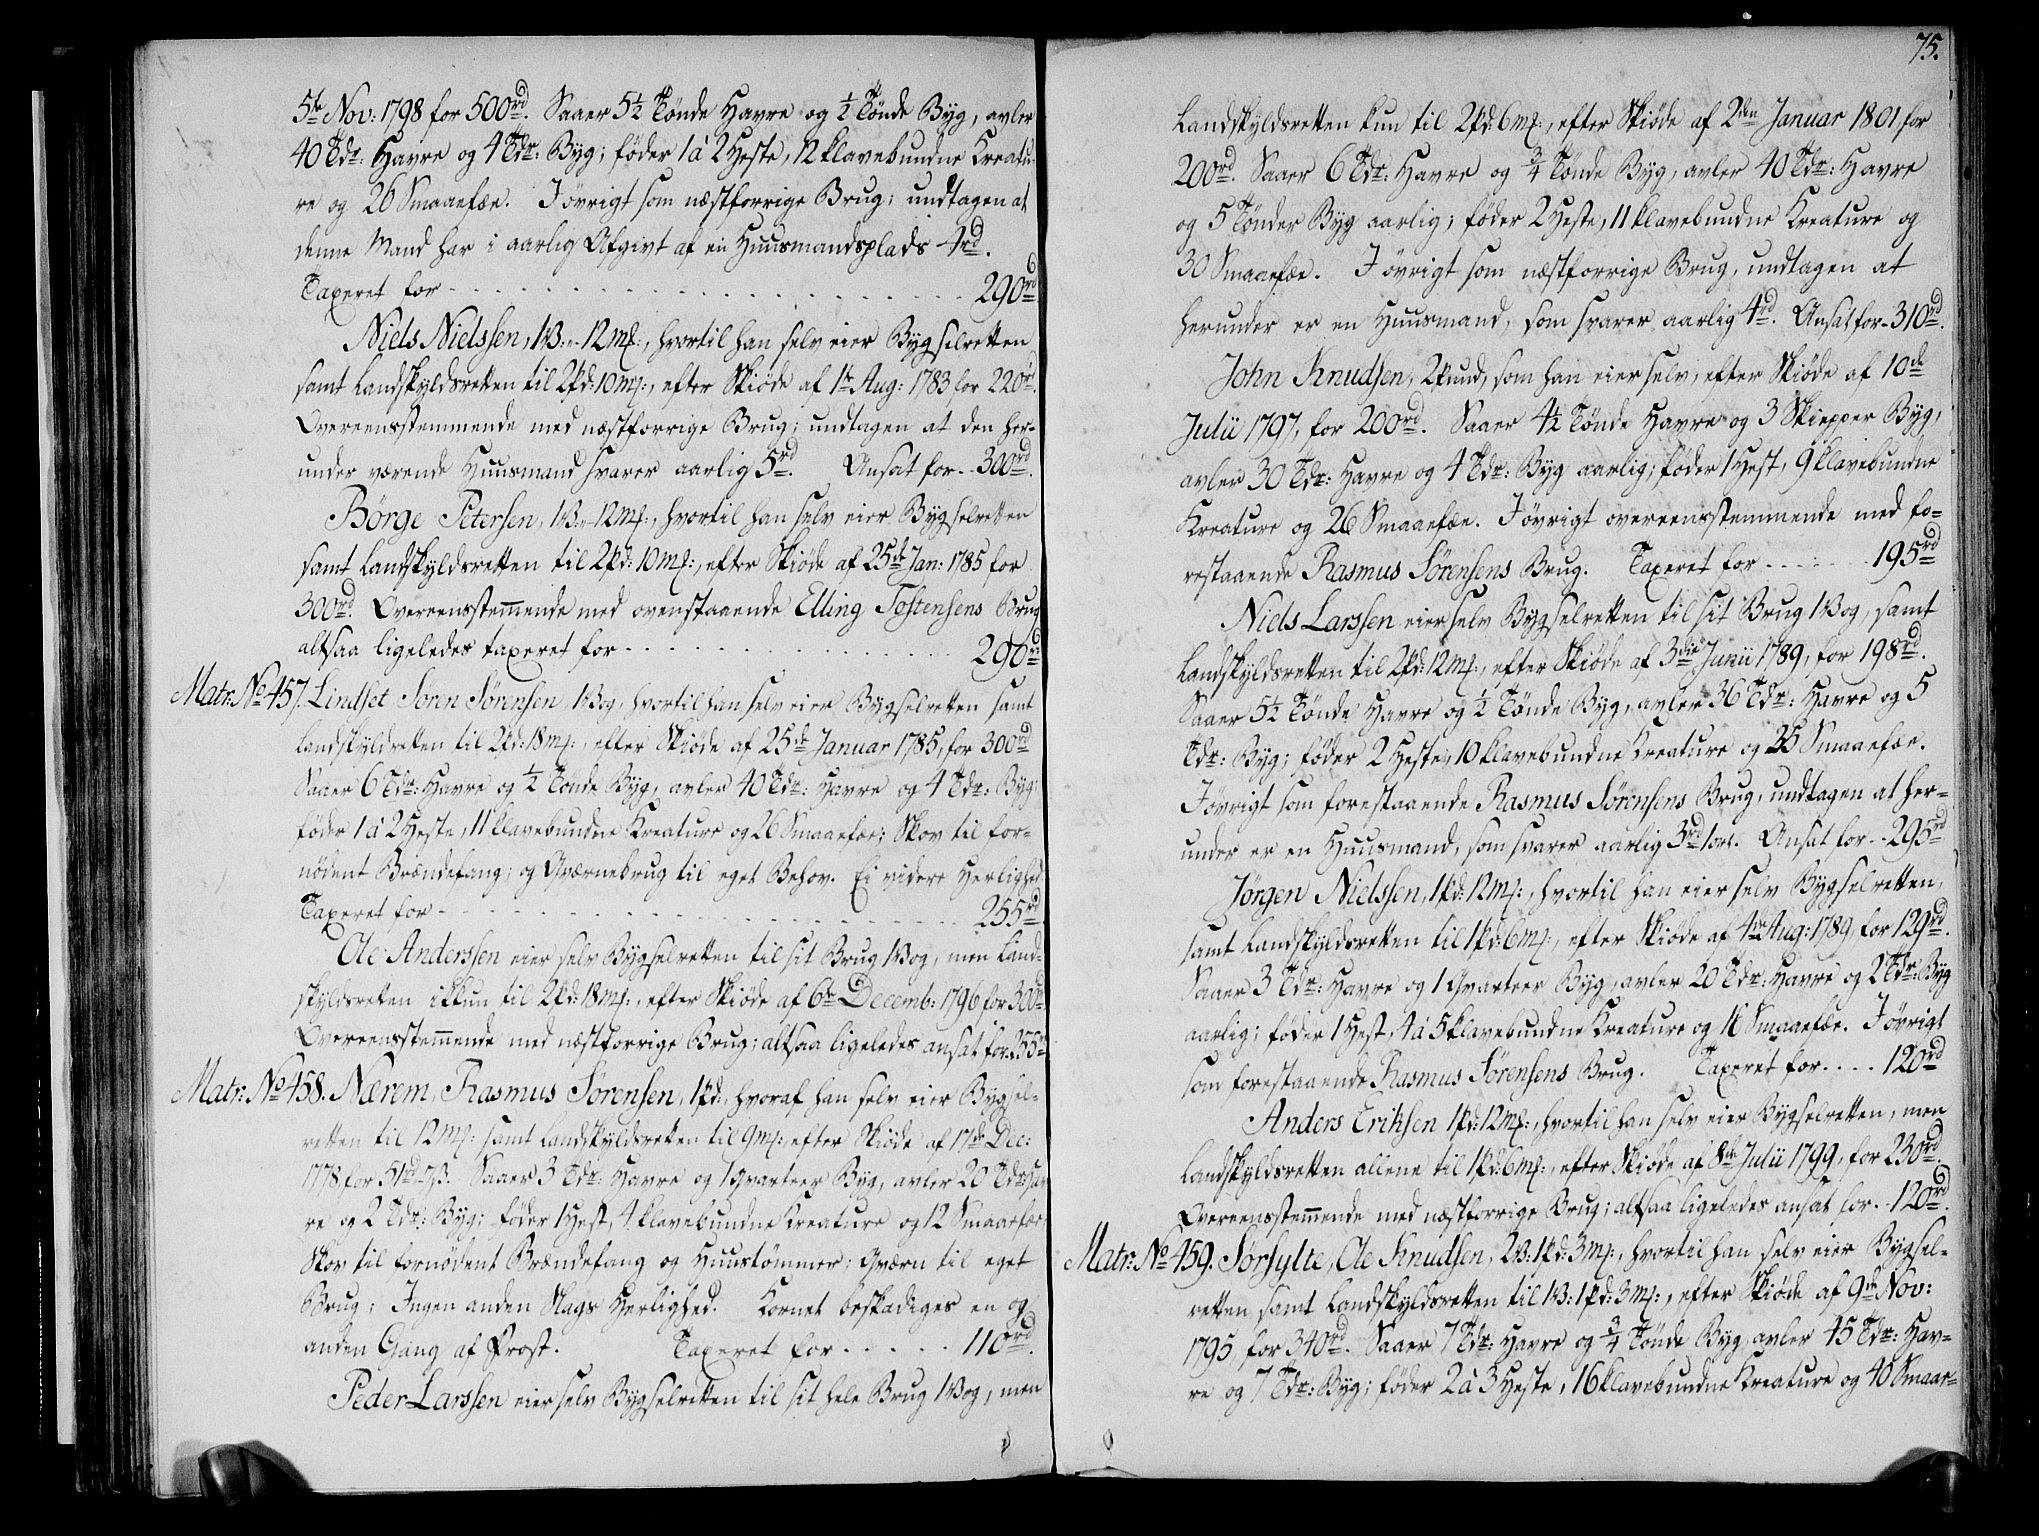 5te Nov: 1798 for 500rd. Saaer 5½ Tønde Havre og ½ Tønde Byg, avler
40 Tdr: Havre og 4 Tdr: Byg; føder 1 à 2 Heste, 12 klavebundne Kreatu-
re og 26 Smaaefæe. I øvrigt som næstforrige Brug; undtagen at
denne Mand har i aarlig Afgivt af en Huusmandsplads 4rd.
Taxeret for - - - - - - 290rd
Niels Nielssen, 1 V. - 12 mk:, hvortil han selv eier Bygselretten
samt Landskyldsretten til 2 pd: 10 mk:, efter Skiøde af 1te Aug: 1783 for 220rd.
Overeensstemmende med næstforrige Brug; undtagen at den her-
under værende Huusmand svarer aarlig 5rd. Ansat for - - 300rd.
Børge Petersen, 1 V. - 12 mk:, hvortil han selv eier Bygselretten
samt Landskyldsretten til 2 pd: 10 mk:, efter Skiøde af 25de Jan: 1785 for
300rd. Overeensstem̅ende med ovenstaaende Elling Tostensens Brug
altsaa ligeledes taxeret for - - - - - - 290rd
Matr: No 457. Lindset Søren Sørensen 1 Vog, hvortil han selv eier Bygselretten samt
Landskyldretten til 2 pd: 18 mk:, efter Skiøde af 25de Januar 1785, for 300rd
Saaer 6 Tdr: Havre og ½ Tønde Byg, avler 40 Tdr: Havre og 4 Tdr: Byg:
føder 1 à 2 Heste, 11 klavebundne Kreature og 26 Smaaefæe; Skov til for-
nødent Brændefang; og Qværnebrug til eget Behov. Ei videre Herlighed
Taxeret for - - - - - - 255rd
Ole Anderssen eier selv Bygselretten til sit Brug 1 Vog, men Land-
skyldsretten ikkun til 2 pd: 18 mk:, efter Skiøde af 6te Decemb: 1796 for 300rd
Overeensstem̅ende med næstforrige Brug; altsaa ligeledes ansat for 255rd
Matr: No 458. Nærem, Rasmus Sørensen, 1 pd:, hvoraf han selv eier Bygsel-
retten til 12 mk: samt Landskyldsretten til 9 mk: efter Skiøde af 17de Dec:
1778, for 51rd Saaer 3 Tdr: Havre og 1 Qvarteer Byg, avler 20 Tdr: Hav-
re og 2 Tdr: Byg; føder 1 Hest, 4 klavebundne Kreature og 12 Smaaefæe;
Skov til fornødent Brændefang og Huustømmer; Qværn til eget
Brug; Ingen anden Slags Herlighed. Kornet beskadiges en og
anden Gang af Frost. Taxeret for - - - - - 110rd.
Peder Larssen eier selv Bygselretten til sit hele Brug 1 Vog, men
75.
Landskyldsretten kun til 2 pd: 6 mk:, efter Skiøde af 2den Januar 1801, for
200rd. Saaer 6 Tdr: Havre og ¾ Tønde Byg, avler 40 Tdr: Havre
og 5 Tønder Byg aarlig; føder 2 Heste, 11 klavebundne Kreature og
30 Smaaefæe. I øvrigt som næstforrige Brug, undtagen at
herunder er en Huusmand, som svarer aarlig 4rd. Ansat for - 310rd.
John Knudsen, 2 pund, som han eier selv, efter Skiøde af 10de
Julii 1797, for 200rd. Saaer 4½ Tønde Havre og 3 Skiepper Byg,
avler 30 Tdr: Havre og 4 Tdr: Byg aarlig; føder 1 Hest, 9 klavebundne
Kreature og 26 Smaaefæe. I øvrigt overeensstemmende med fo-
restaaende Rasmus Sørensens Brug. Taxeret for - - - - - - 195rd
Niels Larssen eier selv Bygselretten til sit Brug 1 Vog, samt
Landskyldsretten til 2 pd: 12 mk:, efter Skiøde af 3die Junii 1789, for 198rd.
Saaer 5½ Tønde Havre og ½ Tønde Byg, avler 36 Tdr: Havre og 5
Tdr: Byg; føder 2 Heste, 10 klavebundne Kreature og 25 Smaaefæe.
I øvrigt som forestaaende Rasmus Sørensens Brug, undtagen at her-
under er en Huusmand, som svarer aarlig 3rd 1 ort. Ansat for - - 295rd
Jørgen Nielssen, 1 pd: 12 mk:, hvortil han eier selv Bygselretten,
samt Landskyldsretten til 1 pd: 6 mk:, efter Skiøde af 4de Aug: 1789, for 129rd.
Saaer 3 Tdr: Havre og 1 Qvarteer Byg, avler 20 Tdr: Havre og 2 Tdr: Byg
aarlig; føder 1 Hest, 4 à 5 klavebundne Kreature og 16 Smaaefæe. I øvrigt
som forestaaende Rasmus Sørensens Brug. Taxeret for - - - - 120rd
Anders Eriksen 1 pd: 12 mk:, hvortil han selv eier Bygselretten, men
Landskyldsretten allene til 1 pd: 6 mk:, efter Skiøde af 8de Julii 1799, for 230rd.
Overeensstem̅ende med næstforrige Brug; altsaa ligeledes ansat for - - 120rd.
Matr: No 459. Sørsylte, Ole Knudsen, 2 V. 1 pd: 3 mk:, hvortil han selv eier Bygsel-
retten samt Landskyldsretten til 1 V: 1 pd: 3 mk:, efter Skiøde af 9de Nov:
1795 for 340rd. Saaer 7 Tdr: Havre og ¾ Tønde Byg, avler 45 Tdr: Hav-
re og 7 Tdr: Byg; føder 2 à 3 Heste, 16 klavebundne Kreature og 40 Smaae-